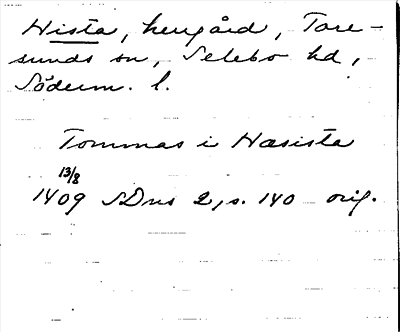 Hista, herrgård, Tore-
sunds sn, Selebo hd,
Söderm. l.
Tommas i Hasista
13/8
1409 SDns 2, s. 140 orig.